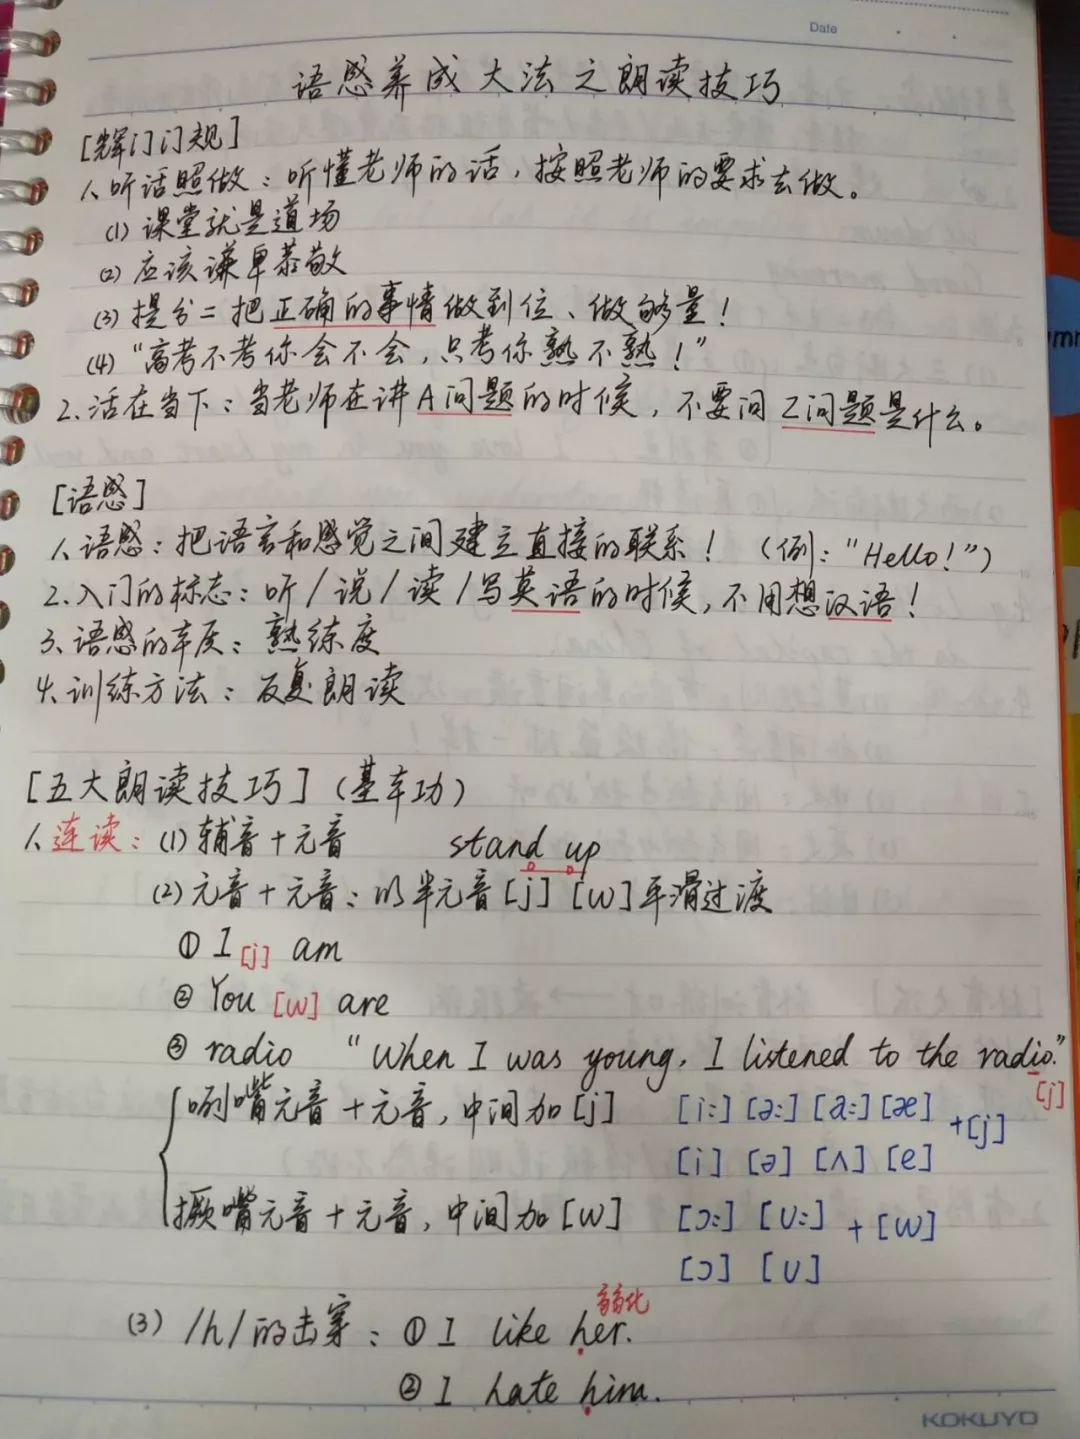 Date
语感养成大法之朗读技巧
[辉门门规]
1、听话照做：听懂老师的话，按照老师的要求去做。
(1) 课堂就是道场
(2) 应该谦卑恭敬
(3) 提分=把正确的事情做到位、做够量！
(4) “高考不考你会不会，只考你熟不熟！”
2、活在当下：当老师在讲A问题的时候，不要问Z问题是什么。
[语感]
1、语感：把语言和感觉之间建立直接的联系！（例：“Hello!”）
2、入门的标志：听/说/读/写英语的时候，不用想汉语！
3、语感的本质：熟练度
4、训练方法：反复朗读
[五大朗读技巧]（基本功）
1、连读：(1) 辅音+元音 stand up
(2) 元音+元音：以半元音[j] [w]平滑过渡
① I [j] am
② You [w] are
③ radio “When I was young, I listened to the radio.”
[j]
咧嘴元音+元音，中间加[j] [i:] [ə:] [a:] [æ] +[j]
[i] [ə] [ʌ] [e]
撅嘴元音+元音，中间加[w] [ɔ:] [U:] +[w]
[ɔ] [U]
弱化
(3) /h/的击穿：① I like her.
② I hate him.
KOKUYO